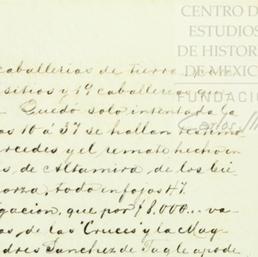 CENTRO DE
ESTUDIOS
DE HISTORIA
DE MEXICO
FUNDACIÓN
Carlos
caballerias de tierra
sitios y 19 caballerias que
Quedó solo intentada la
as 10 á 37 se hallan testimo
ercedes y el remate hecho en
s de Altamira de los bie
orza, todo en fojas 47.
igacion, que por $8.000... va
as de las "Cruces y la Mag
dres Sanchez de Tagle apode